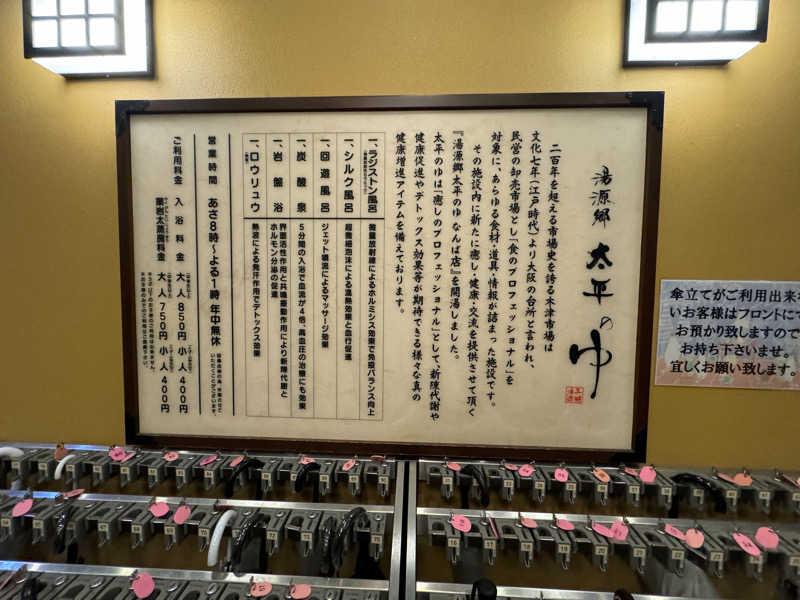 湯源郷 太平のゆ
二百年を超える市場史を誇る木津市場は
文化七年(江戸時代)より大阪の台所と言われ、
民営の卸売市場とし「食のプロフェッショナル」を
対象に、あらゆる食材・道具・情報が詰まった施設です。
その施設内に新たに癒し・健康・交流を提供させて頂く
『湯源郷 太平のゆ なんば店』を開湯しました。
太平のゆは「癒しのプロフェッショナル」として、新陳代謝や
健康促進やデトックス効果等が期待できる様々な真の
健康増進アイテムを備えております。
一、ラジストン風呂
微量放射線によるホルミシス効果で免疫バランス向上
一、シルク風呂
超微細泡沫による温熱効果と血行促進
一、回遊風呂
ジェット噴流によるマッサージ効果
一、炭酸泉
5分間の入浴で血流が4倍、高血圧の治療にも効果
一、岩盤浴
界面活性作用と共鳴振動作用により新陳代謝と
ホルモン分泌の促進
一、ロウリュウ
熱波による発汗作用でデトックス効果
営業時間 あさ8時〜よる1時 年中無休
ご利用料金 入浴料金 大人 850円 小人 400円
薬岩太蒸房料金 大人 750円 小人 400円
傘立てがご利用出来な
いお客様はフロントにて
お預かり致しますので
お持ち下さいませ。
宜しくお願い致します。